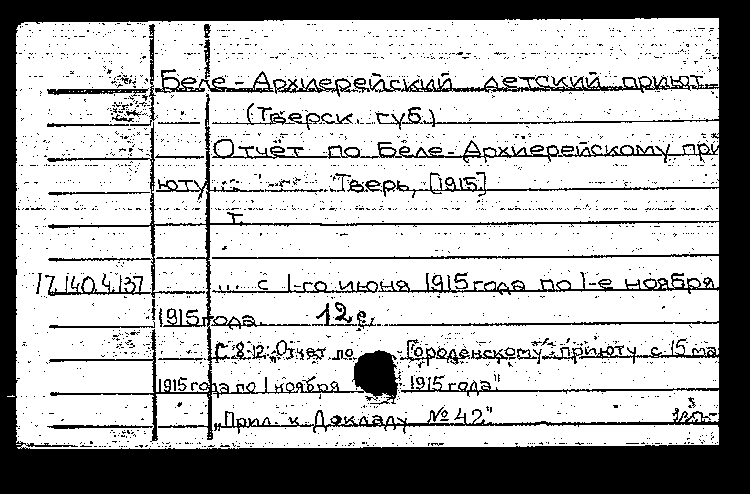 Беле-Архиерейский детский приют
(Тверск. губ.)
Отчёт по Беле-Архиерейскому при
юту ... Тверь, [1915]
т.
17.140.4.137 ... с 1-го июня 1915 года по 1-е ноября
1915 года. 12 с.
С. 8-12: „Отчет по Городенскому приюту с 15 ма
1915 года по 1 ноября 1915 года"
„Прил. к Докладу № 42"